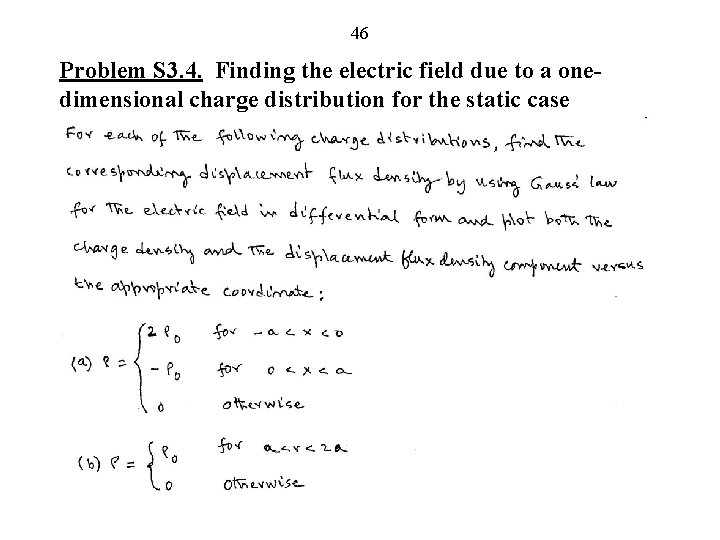 46
Problem S3.4. Finding the electric field due to a one-
dimensional charge distribution for the static case
For each of the following charge distributions, find the
corresponding displacement flux density by using Gauss' law
for the electric field in differential form and plot both the
charge density and the displacement flux density component versus
the appropriate coordinate:
(a) ρ = { 2ρ₀ for -a < x < 0
-ρ₀ for 0 < x < a
0 otherwise
(b) ρ = { ρ₀ for a < r < 2a
0 otherwise